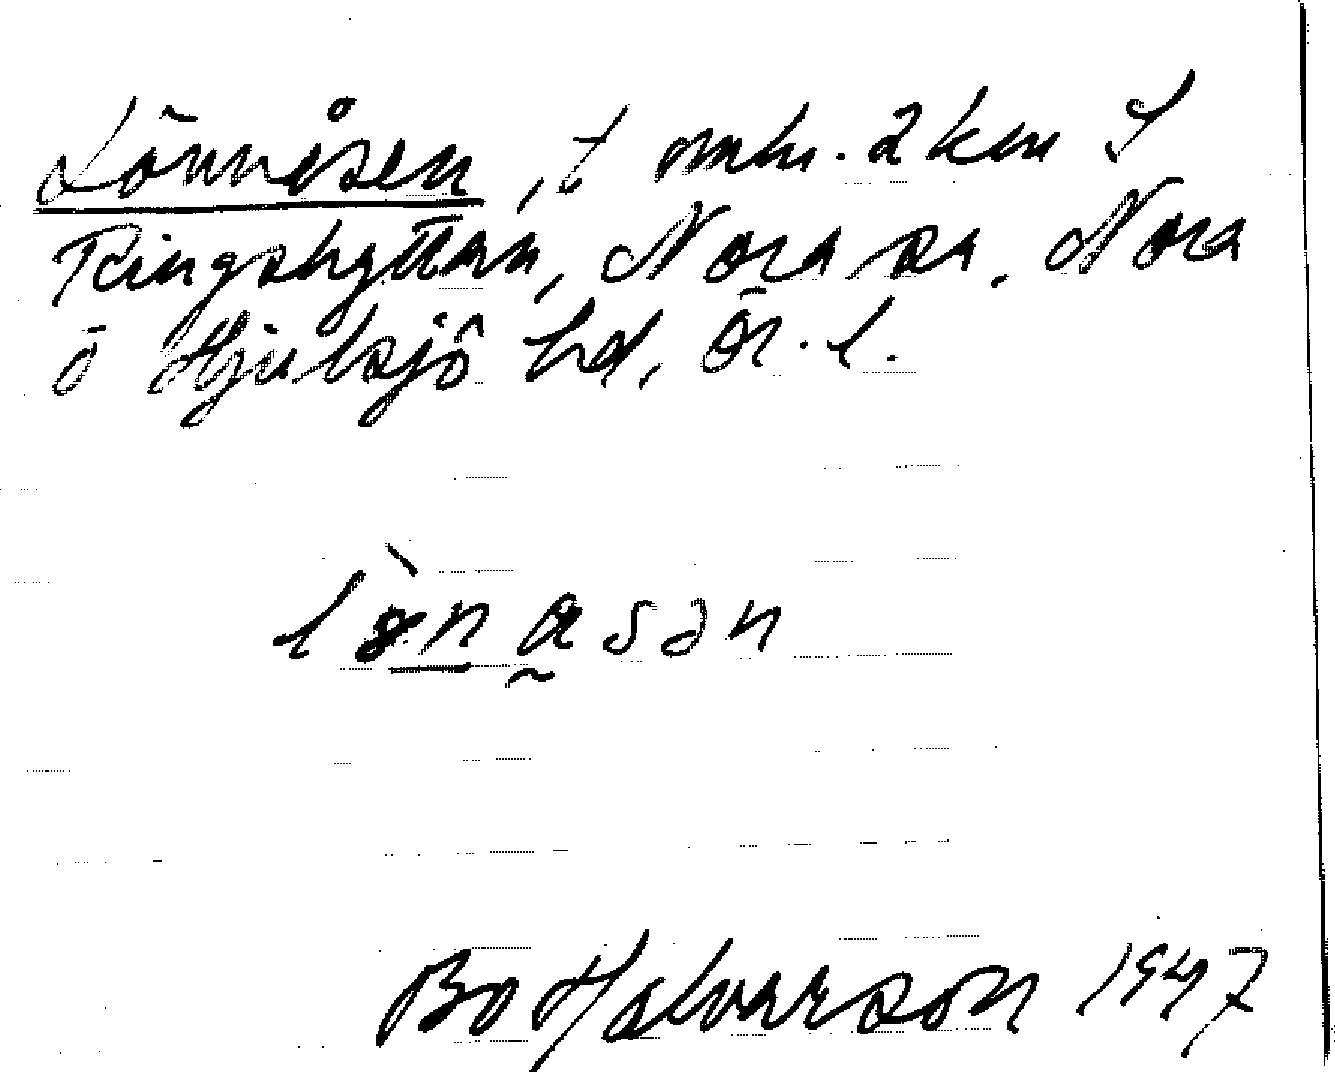 Lönnåsen, t omr. 2 km S
Ringshyttan, Nora sn, Nora
o Hjulsjö hd, Ör. l.
lò̀nɑsən
Bo Halvarson 1947